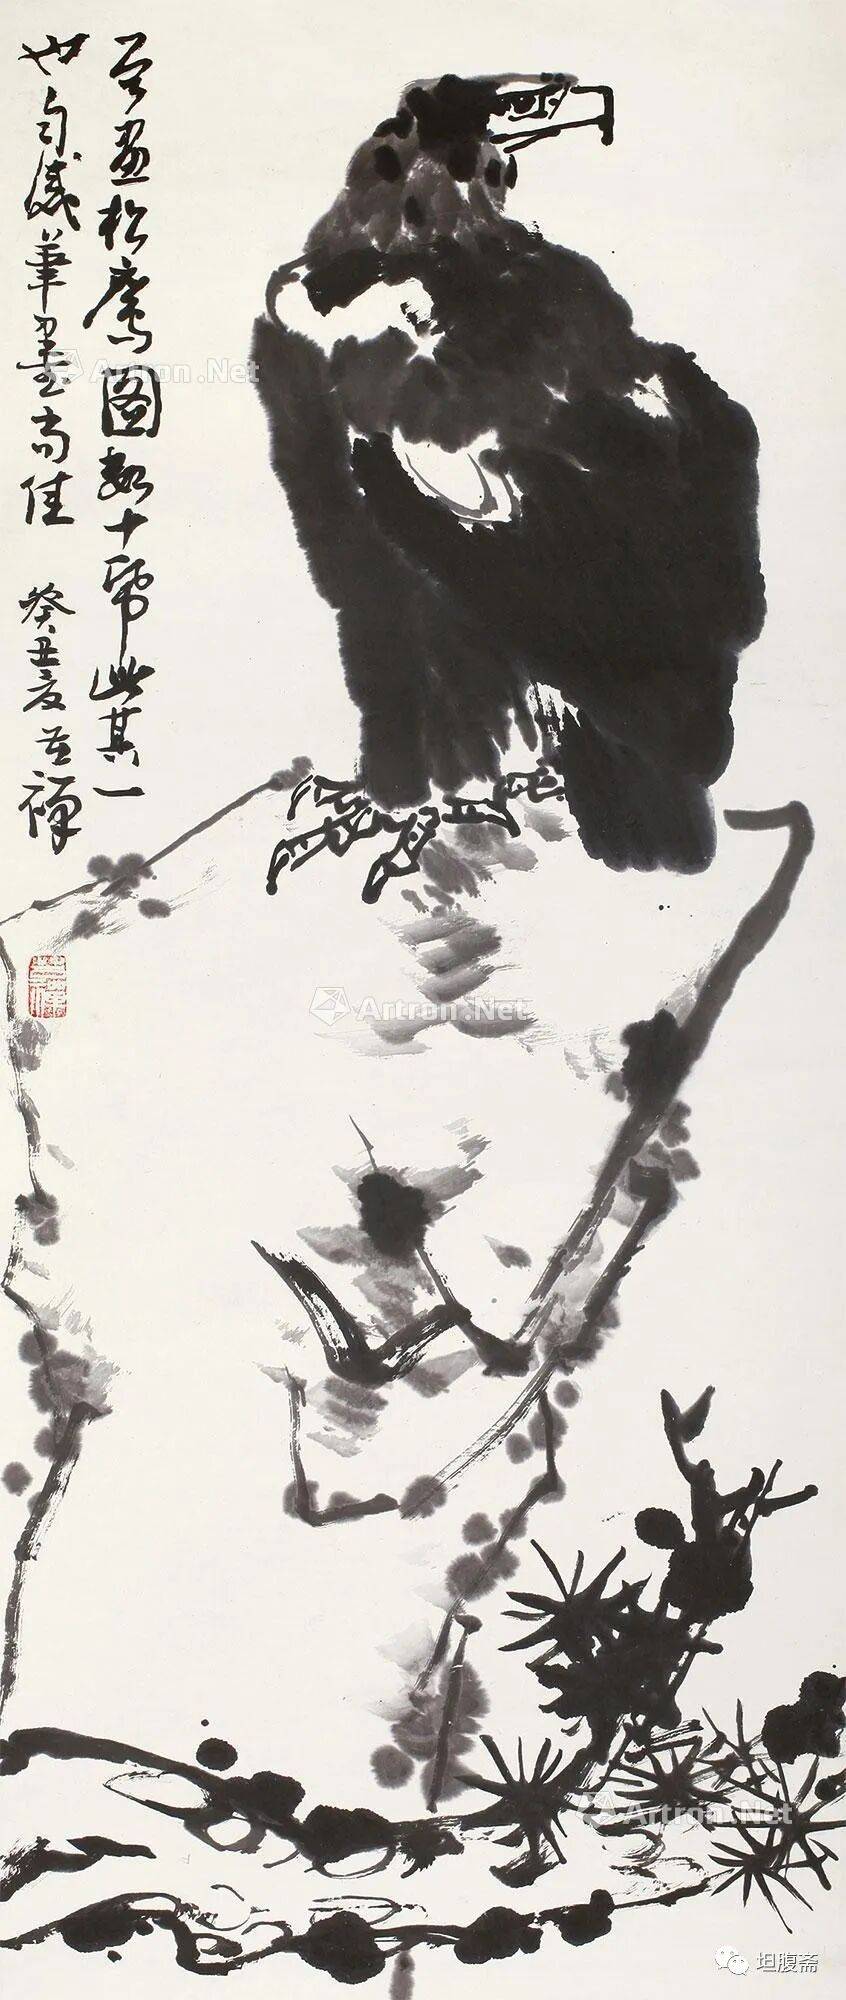 畫松鷹圖數十帋此其一
也自感筆墨尚佳 癸丑夏 苦禪
苦禪
Artron.Net
Artron.Net
Artron.Net
坦腹斋